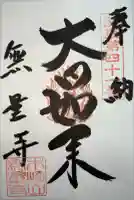 奉納
四十
大日如来
無量寺